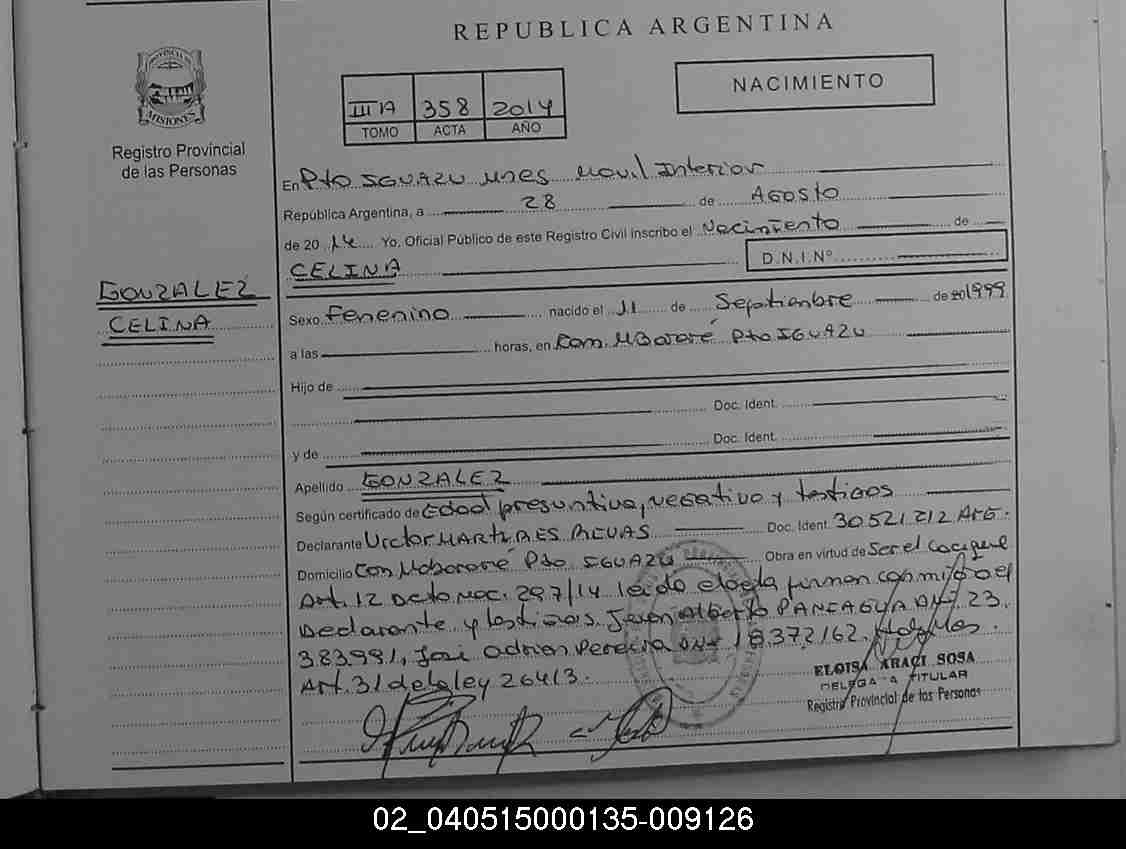 REPUBLICA ARGENTINA
PROVINCIA DE
MISIONES
Registro Provincial
de las Personas
III A 358 2014
TOMO ACTA AÑO
NACIMIENTO
En Pto IGUAZU Mnes Movil Interior
República Argentina, a 28 de AGOSTO
de 20 14 Yo, Oficial Público de este Registro Civil inscribo el Nacimiento de
CELINA D.N.I.Nº
GONZALEZ
CELINA
Sexo Femenino nacido el 11 de Septiembre de 20 1999
a las horas, en Com. Mbororé Pto IGUAZU
Hijo de
Doc. Ident.
Doc. Ident.
y de
Apellido GONZALEZ
Según certificado de Edad presuntiva, negativo y testigos
Declarante Victor MARTINES Doc. Ident. 30521212 ARG.
Domicilio Com Mbororé Pto IGUAZU Obra en virtud de Ser el Cacique
Art. 12 Dcto Nac. 297/14 leida el acta firman conmigo el
Declarante y testigos Juan Alberto PANIAGUA DNI 23.
383.991, José Adrian Pereira DNI 18.372.162.
Art. 31 de la ley 26413.
ELOISA ARACI SOSA
DELEGADA TITULAR
Registro Provincial de las Personas
02_040515000135-009126